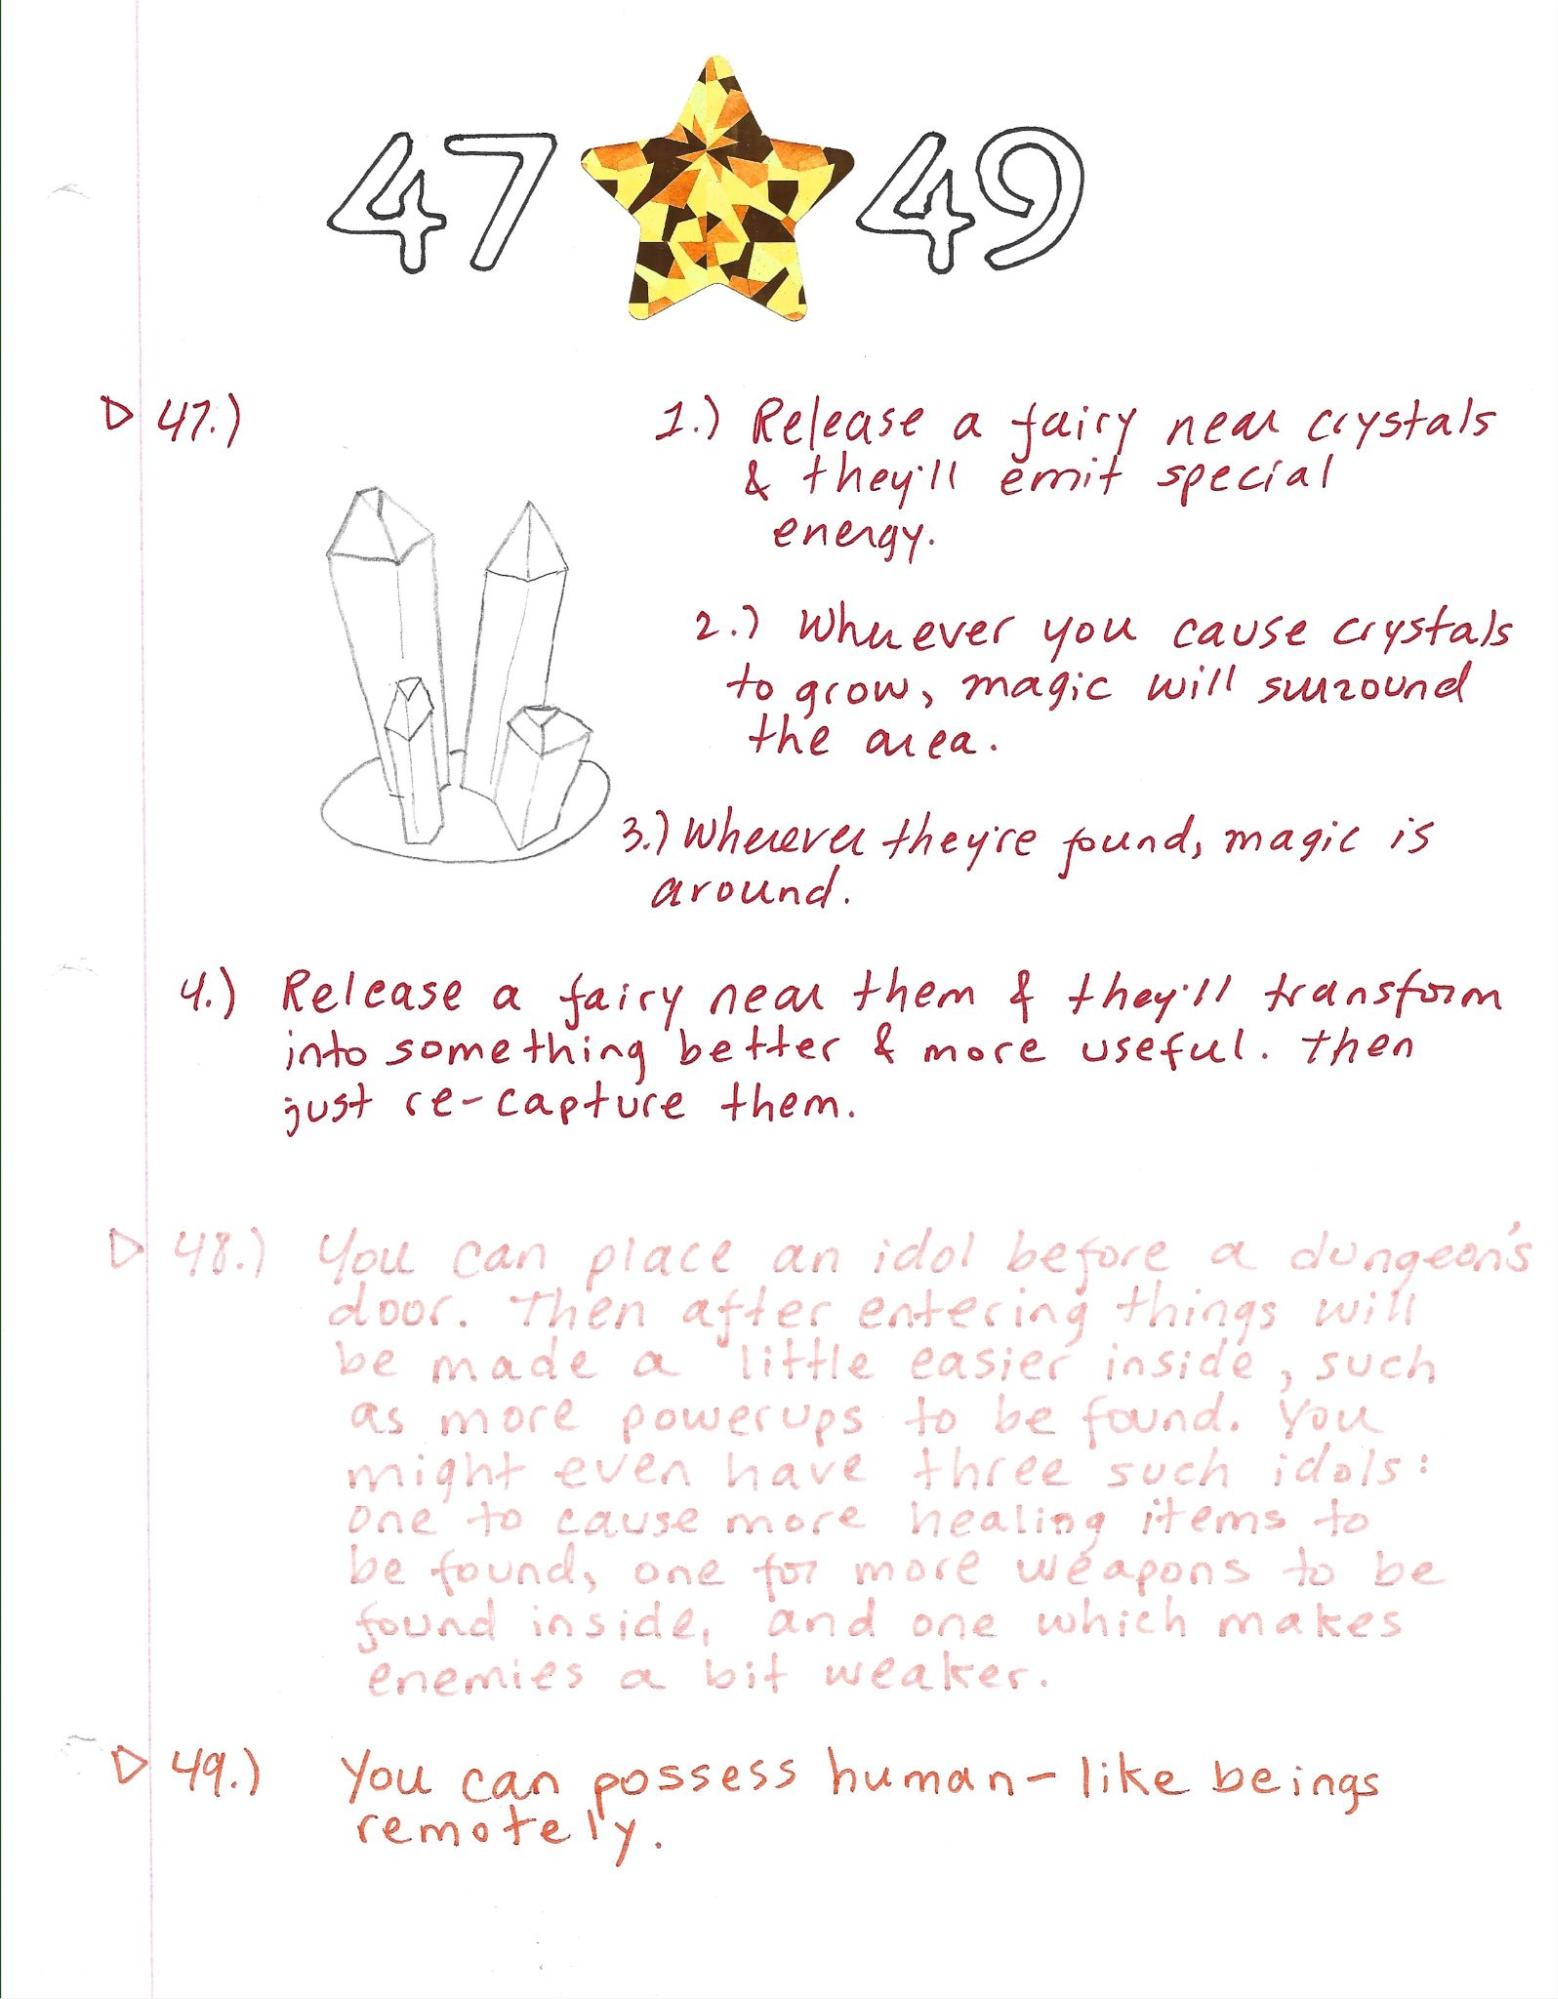 47 49
47.)
1.) Release a fairy near crystals
& they'll emit special
energy.
2.) Whenever you cause crystals
to grow, magic will surround
the area.
3.) Wherever they're found, magic is
around.
4.) Release a fairy near them & they'll transform
into something better & more useful. Then
just re-capture them.
48.) You can place an idol before a dungeon's
door. Then after entering things will
be made a little easier inside, such
as more powerups to be found. You
might even have three such idols:
one to cause more healing items to
be found, one for more weapons to be
found inside, and one which makes
enemies a bit weaker.
49.) You can possess human-like beings
remotely.